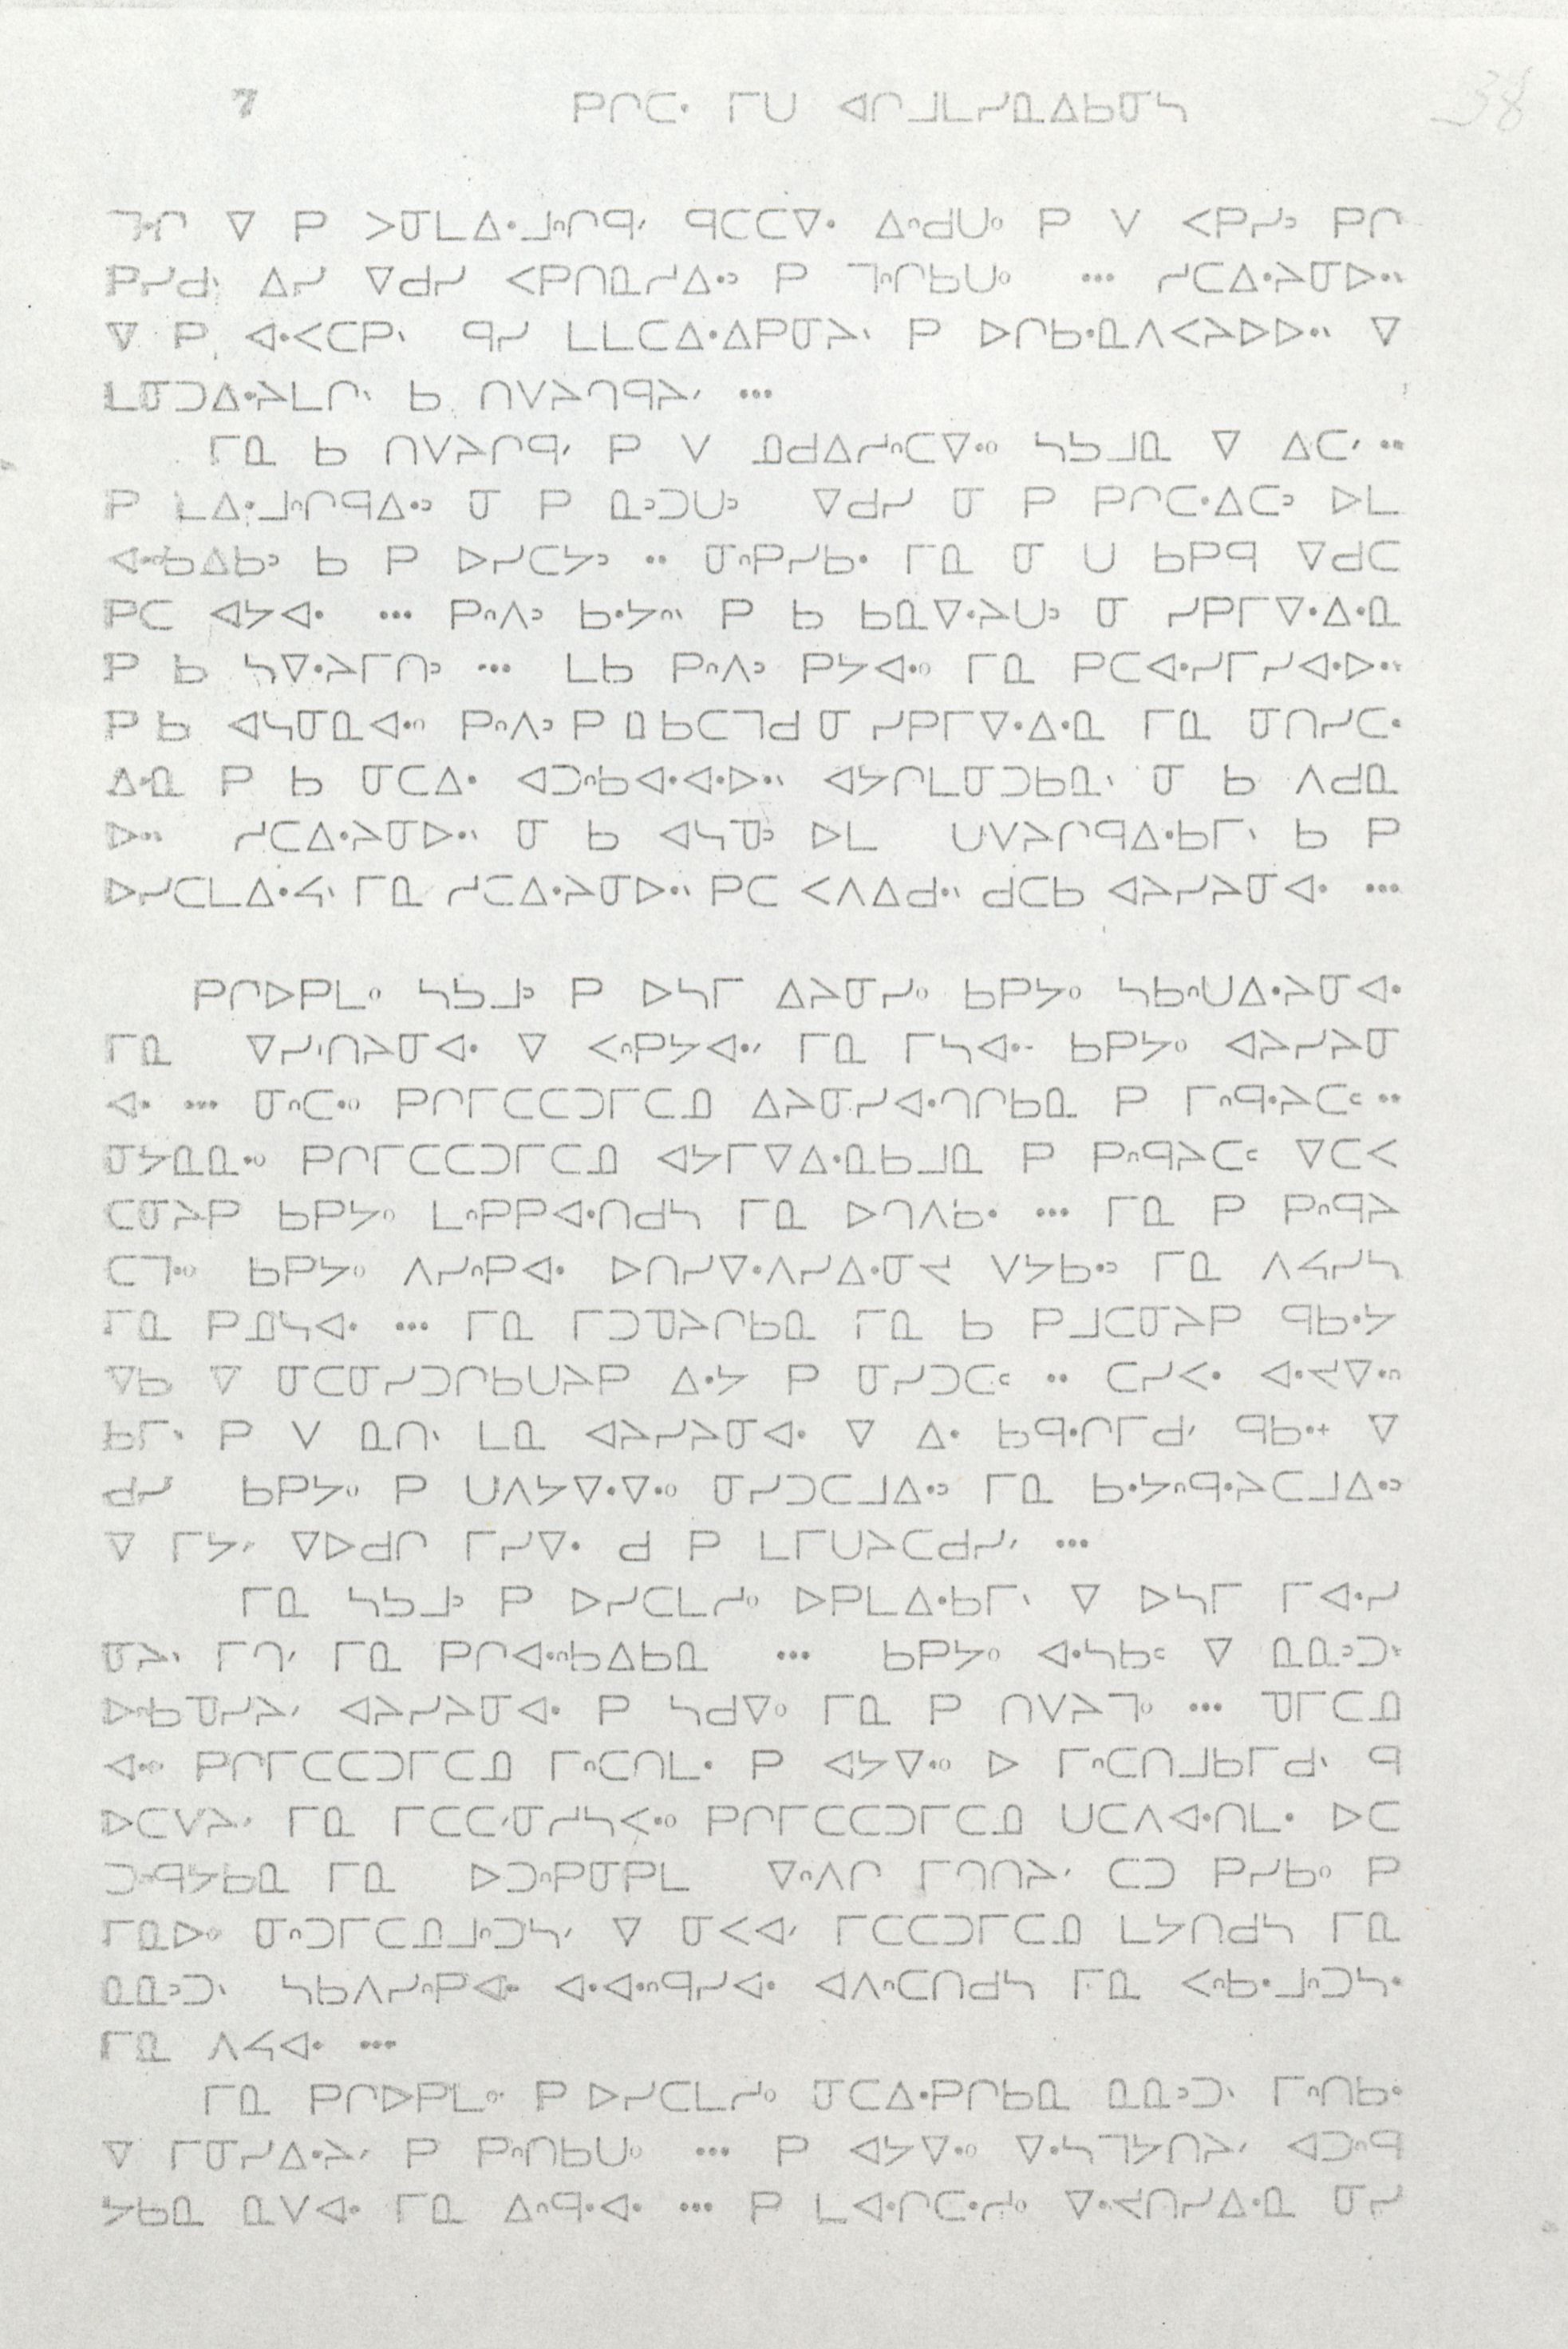 7 ᑭᒋᑕᐧ ᒥᑌ ᐊᒋᒧᒪᓯᓇᐃᑲᓂᓴ 38
ᐁ ᑭ ᐳᓂᒪᐃᐧᒧᐢᒋᑫᐟ ᑫᑕᑕᐁᐧ ᐃᐧᐢᑯᑌᐤ ᑭ ᐯ ᐸᑭᓯᐣ ᑭᒋ
ᑭᓯᑯᐠ ᐃᓯ ᐁᑯᓯ ᐸᑭᑎᓇᓯᐃᐧᐣ ᑭ ᒣᐢᒋᑲᑌᐤ ... ᓯᑕᐃᐧᔨᓂᐅᐧᐠ
ᐁ ᑭ ᐊᐧᐸᑕᑭᐠ ᑫᓯ ᒪᒪᑕᐃᐧᐃᑭᓂᔨᐠ ᑭ ᐅᒋᑲᐧᓇᐱᐸᔨᐅᐅᐧᐠ ᐁ
ᒪᓂᑐᐃᐧᔨᒪᒋᐠ ᑲ ᑎᐯᔨᒋᑫᔨᐟ ...
ᒥᓇ ᑲ ᑎᐯᔨᒋᑫᐟ ᑭ ᐯ ᓄᑯᐃᓯᐢᑕᐁᐧᐤ ᓴᓴᒧᓇ ᐁ ᐃᑕᐟ ..
ᑭ ᒪᐃᐧᒧᐢᒋᑫᐃᐧᐣ ᓂ ᑭ ᓇᐣᑐᑌᐣ ᐁᑯᓯ ᓂ ᑭ ᑭᒋᑕᐧᐃᑕᐣ ᐅᒪ
ᐊᐧᐢᑲᐃᑲᐣ ᑲ ᑭ ᐅᓯᑕᔭᐣ .. ᓂᐢᑭᓯᑲᐧ ᒥᓇ ᓂ ᑌ ᑲᑭᑫ ᐁᑯᑕ
ᑭᑕ ᐊᔭᐊᐧ ... ᑭᐢᐱᐣ ᑲᐧᔭᐢᐠ ᑭ ᑲ ᑲᓇᐁᐧᔨᑌᐣ ᓂ ᓯᑭᒥᐁᐧᐃᐧᓇ
ᑭ ᑲ ᓴᐁᐧᔨᒥᑎᐣ ... ᒪᑲ ᑭᐢᐱᐣ ᑭᔭᐊᐧᐤ ᒥᓇ ᑭᑕᐊᐧᓯᒥᓯᐊᐧᐅᐧᐠ
ᑭ ᑲ ᐊᓴᓂᓇᐊᐧᐤ ᑭᐢᐱᐣ ᑭ ᓇ ᑲᑕᒣᑯ ᓂ ᓯᑭᒥᐁᐧᐃᐧᓇ ᒥᓇ ᓂᑎᓯᑕᐧ
ᐃᐧᓇ ᑭ ᑲ ᓂᑕᐃᐧ ᐊᑐᐢᑲᐊᐧᐊᐧᐅᐧᐠ ᐊᔭᒋᒪᓂᑐᑲᓇᐠ ᓂ ᑲ ᐱᑯᓇ
ᐅᐧᐠ ᓯᑕᐃᐧᔨᓂᐅᐧᐠ ᓂ ᑲ ᐊᓴᓀᐣ ᐅᒪ ᑌᐯᔨᒋᑫᐃᐧᑲᒥᐠ ᑲ ᑭ
ᐅᓯᑕᒪᐃᐧᔦᐠ ᒥᓇ ᓯᑕᐃᐧᔨᓂᐅᐧᐠ ᑭᑕ ᐸᐱᐃᑯᐧᐠ ᑯᑕᑲ ᐊᔨᓯᔨᓂᐊᐧ ...
ᑭᒋᐅᑭᒪᐤ ᓴᓴᒧᐣ ᑭ ᐅᓴᒥ ᐃᔨᓂᓯᐤ ᑲᑭᔭᐤ ᓴᑲᐢᑌᐃᐧᔨᓂᐊᐧ
ᒥᓇ ᐁᓯᐠᑎᔨᓂᐊᐧ ᐁ ᐸᐢᑭᔭᐊᐧᐟ ᒥᓇ ᒥᓴᐊᐧ ᑲᑭᔭᐤ ᐊᔨᓯᔨᓂ
ᐊᐧ ... ᓂᐢᑕᐧᐤ ᑭᒋᒥᑕᑕᑐᒥᑕᓄ ᐃᔨᓂᓯᐊᐧᒉᒋᑲᓇ ᑭ ᒥᐢᑫᐧᔨᑕᒼ ..
ᓂᔭᓇᓇᐧᐤ ᑭᒋᒥᑕᑕᑐᒥᑕᓄ ᐊᔭᒥᐁᐃᐧᓇᑲᒧᓇ ᑭ ᑭᐢᑫᔨᑕᒼ ᐁᑕᐸ
ᑕᓂᔨᑭ ᑲᑭᔭᐤ ᒪᐢᑭᑭᐊᐧᑎᑯᓴ ᒥᓇ ᐅᒉᐱᑲᐧ ... ᒥᓇ ᑭ ᑭᐢᑫᔨ
ᑕᒣᐧᐤ ᑲᑭᔭᐤ ᐱᓯᐢᑭᐊᐧ ᐅᑎᓯᐁᐧᐱᓯᐃᐧᓂᔪ ᐯᔭᑲᐧᐣ ᒥᓇ ᐱᔦᓯᓴ
ᒥᓇ ᑭᓄᓴᐊᐧ ... ᒥᓇ ᒥᑐᓀᔨᒋᑲᓇ ᒥᓇ ᑲ ᑭᒧᑕᓂᔨᑭ ᑫᑲᐧᔭ
ᐁᑲ ᐁ ᓂᑕᓂᓯᑐᒋᑲᑌᔨᑭ ᐃᐧᔭ ᑭ ᓂᓯᑐᑕᒼ .. ᑕᓯᐸᐧ ᐊᐧᔪᐁᐧᐢ
ᑲᒥᐠ ᑭ ᐯ ᓇᑎᐠ ᒪᓇ ᐊᔨᓯᔨᓂᐊᐧ ᐁ ᐃᐧ ᑲᑫᐧᒋᒥᑯᐟ ᑫᑲᐧᐩ ᐁ
ᑯᓯ ᑲᑭᔭᐤ ᑭ ᑌᐱᔭᐁᐧᐁᐧᐤ ᓂᓯᑐᑕᒧᐃᐧᐣ ᒥᓇ ᑲᐧᔭᐢᑫᐧᔨᑕᒧᐃᐧᐣ
ᐁ ᒥᔭᐟ ᐁᐅᑯᒋ ᒥᓯᐁᐧ ᑯ ᑭ ᒪᒥᑌᔨᑕᑯᓯᐟ ...
ᒥᓇ ᓴᓴᒧᐣ ᑭ ᐅᓯᑕᒪᓯᐤ ᐅᑭᒪᐃᐧᑲᒥᐠ ᐁ ᐅᓴᒥ ᒥᐊᐧᓯ
ᓂᔨᐠ ᒥᒉᐟ ᒥᓇ ᑭᒋᐊᐧᐢᑲᐃᑲᓇ ... ᑲᑭᔭᐤ ᐊᐧᓴᑲᒼ ᐁ ᓇᓇᐣᑐᐠ
ᐊᔨᓯᔨᓂᐊᐧ ᑭ ᓴᑯᐁᐤ ᒥᓇ ᑭ ᑎᐯᔨᒣᐤ ... ᓀᒥᑕᓄ
ᑭᒋᒥᑕᑕᑐᒥᑕᓄ ᒥᐢᑕᑎᒪᐧ ᑭ ᐊᔭᐁᐧᐤ ᐅ ᒥᐢᑕᑎᒧᑲᒥᑯᐠ ᑫ
ᐅᑕᐯᔨᐟ ᒥᓇ ᒥᑕᑕᐟᓂᓯᓴᐸᐧᐤ ᑭᒋᒥᑕᑕᑐᒥᑕᓄ ᑌᑕᐱᐊᐧᑎᒪᐧ ᐅᑕ
ᑐᐢᑫᔭᑲᓇ ᒥᓇ ᐅᑐᐢᑭᓂᑭᒪ ᐁᐧᐱᒋ ᒥᒉᑎᔨᐟ ᑕᑐ ᑭᓯᑲᐤ ᑭ
ᒥᓇᐅᐤ ᓂᐢᑐᒥᑕᓄᒧᐢᑐᓴᐟ ᐁ ᓂᐸᐊᐟ ᒥᑕᑕᑐᒥᑕᓄ ᒪᔭᑎᑯᓴ ᒥᓇ
ᓇᓇᐣᑐᐠ ᓴᑲᐱᓯᐢᑭᐊᐧ ᐊᐧᐊᐧᐢᑫᓯᐊᐧ ᐊᐱᐢᑕᑎᑯᓴ ᒥᓇ ᐸᐢᑲᐧᒧᐢᑐᓴᐧ
ᒥᓇ ᐱᔦᐊᐧ ...
ᒥᓇ ᑭᒋᐅᑭᒪᐤ ᑭ ᐅᓯᑕᒪᓯᐤ ᓂᑕᐃᐧᑭᒋᑲᓇ ᓇᓇᐣᑐᐠ ᒥᐢᑎᑲᐧ
ᐁ ᒥᓂᓯᐃᐧᔨᐟ ᑭ ᑭᐢᑎᑲᑌᐤ ... ᑭ ᐊᔭᐁᐧᐤ ᐁᐧᓴᒣᔭᑎᔨᐟ ᐊᑐᐢᑫ
ᔭᑲᓇ ᓇᐯᐊᐧ ᒥᓇ ᐃᐢᑫᐧᐊᐧ ... ᑭ ᒪᐊᐧᒋᑕᐧᓯᐤ ᐁᐧᔪᑎᓯᐃᐧᓇ ᓂᓯ